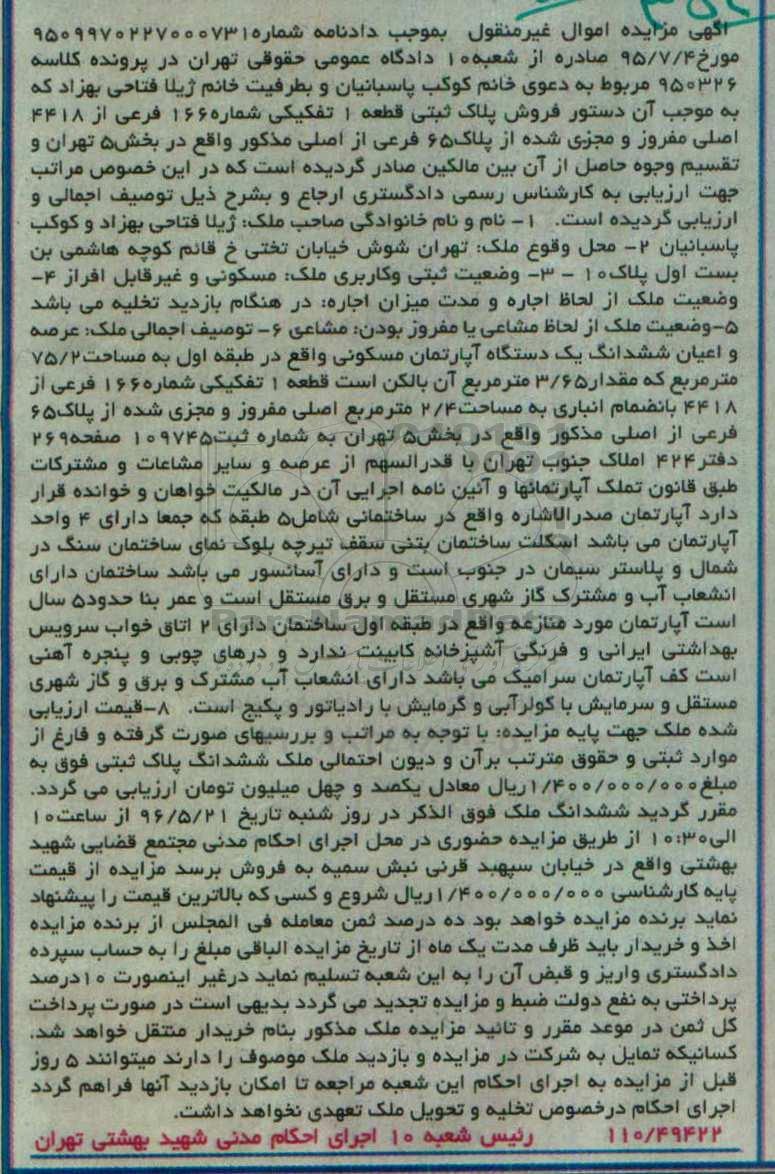 آگهی مزایده اموال غیرمنقول بموجب دادنامه شماره۹۵۰۹۹۷۰۲۲۷۰۰۰۷۳۱
مورخ۹۵/۷/۴ صادره از شعبه۱۰ دادگاه عمومی حقوقی تهران در پرونده کلاسه
۹۵۰۳۲۶ مربوط به دعوی خانم کوکب پاسبانیان و بطرفیت خانم ژیلا فتاحی بهزاد که
به موجب آن دستور فروش پلاک ثبتی قطعه ۱ تفکیکی شماره۱۶۶ فرعی از ۴۴۱۸
اصلی مفروز و مجزی شده از پلاک۶۵ فرعی از اصلی مذکور واقع در بخش۵ تهران و
تقسیم وجوه حاصل از آن بین مالکین صادر گردیده است که در این خصوص مراتب
جهت ارزیابی به کارشناس رسمی دادگستری ارجاع و بشرح ذیل توصیف اجمالی و
ارزیابی گردیده است. ۱- نام و نام خانوادگی صاحب ملک: ژیلا فتاحی بهزاد و کوکب
پاسبانیان ۲- محل وقوع ملک: تهران شوش خیابان تختی خ قائم کوچه هاشمی بن
بست اول پلاک۱۰ - ۳- وضعیت ثبتی وکاربری ملک: مسکونی و غیرقابل افراز ۴-
وضعیت ملک از لحاظ اجاره و مدت میزان اجاره: در هنگام بازدید تخلیه می باشد
۵-وضعیت ملک از لحاظ مشاعی یا مفروز بودن: مشاعی ۶- توصیف اجمالی ملک: عرصه
و اعیان ششدانگ یک دستگاه آپارتمان مسکونی واقع در طبقه اول به مساحت۷۵/۲
مترمربع که مقدار۳/۶۵ مترمربع آن بالکن است قطعه ۱ تفکیکی شماره۱۶۶ فرعی از
۴۴۱۸ بانضمام انباری به مساحت۲/۴ مترمربع اصلی مفروز و مجزی شده از پلاک۶۵
فرعی از اصلی مذکور واقع در بخش۵ تهران به شماره ثبت۱۰۹۷۴۵ صفحه۲۶۹
دفتر۴۲۴ املاک جنوب تهران با قدرالسهم از عرصه و سایر مشاعات و مشترکات
طبق قانون تملک آپارتمانها و آئین نامه اجرایی آن در مالکیت خواهان و خوانده قرار
دارد آپارتمان صدرالاشاره واقع در ساختمانی شامل۵ طبقه که جمعا دارای ۴ واحد
آپارتمان می باشد اسکلت ساختمان بتنی سقف تیرچه بلوک نمای ساختمان سنگ در
شمال و پلاستر سیمان در جنوب است و دارای آسانسور می باشد ساختمان دارای
انشعاب آب و مشترک گاز شهری مستقل و برق مستقل است و عمر بنا حدود۵ سال
است آپارتمان مورد منازعه واقع در طبقه اول ساختمان دارای ۲ اتاق خواب سرویس
بهداشتی ایرانی و فرنگی آشپزخانه کابینت ندارد و درهای چوبی و پنجره آهنی
است کف آپارتمان سرامیک می باشد دارای انشعاب آب مشترک و برق و گاز شهری
مستقل و سرمایش با کولرآبی و گرمایش با رادیاتور و پکیج است. ۸-قیمت ارزیابی
شده ملک جهت پایه مزایده: با توجه به مراتب و بررسیهای صورت گرفته و فارغ از
موارد ثبتی و حقوق مترتب برآن و دیون احتمالی ملک ششدانگ پلاک ثبتی فوق به
مبلغ۱/۴۰۰/۰۰۰/۰۰۰ریال معادل یکصد و چهل میلیون تومان ارزیابی می گردد.
مقرر گردید ششدانگ ملک فوق الذکر در روز شنبه تاریخ ۹۶/۵/۲۱ از ساعت۱۰
الی۱۰:۳۰ از طریق مزایده حضوری در محل اجرای احکام مدنی مجتمع قضایی شهید
بهشتی واقع در خیابان سپهبد قرنی نبش سمیه به فروش برسد مزایده از قیمت
پایه کارشناسی ۱/۴۰۰/۰۰۰/۰۰۰ریال شروع و کسی که بالاترین قیمت را پیشنهاد
نماید برنده مزایده خواهد بود ده درصد ثمن معامله فی المجلس از برنده مزایده
اخذ و خریدار باید ظرف مدت یک ماه از تاریخ مزایده الباقی مبلغ را به حساب سپرده
دادگستری واریز و قبض آن را به این شعبه تسلیم نماید درغیر اینصورت ۱۰درصد
پرداختی به نفع دولت ضبط و مزایده تجدید می گردد بدیهی است در صورت پرداخت
کل ثمن در موعد مقرر و تائید مزایده ملک مذکور بنام خریدار منتقل خواهد شد.
کسانیکه تمایل به شرکت در مزایده و بازدید ملک موصوف را دارند میتوانند ۵ روز
قبل از مزایده به اجرای احکام این شعبه مراجعه تا امکان بازدید آنها فراهم گردد
اجرای احکام درخصوص تخلیه و تحویل ملک تعهدی نخواهد داشت.
۱۱۰/۴۹۴۲۲ رئیس شعبه ۱۰ اجرای احکام مدنی شهید بهشتی تهران